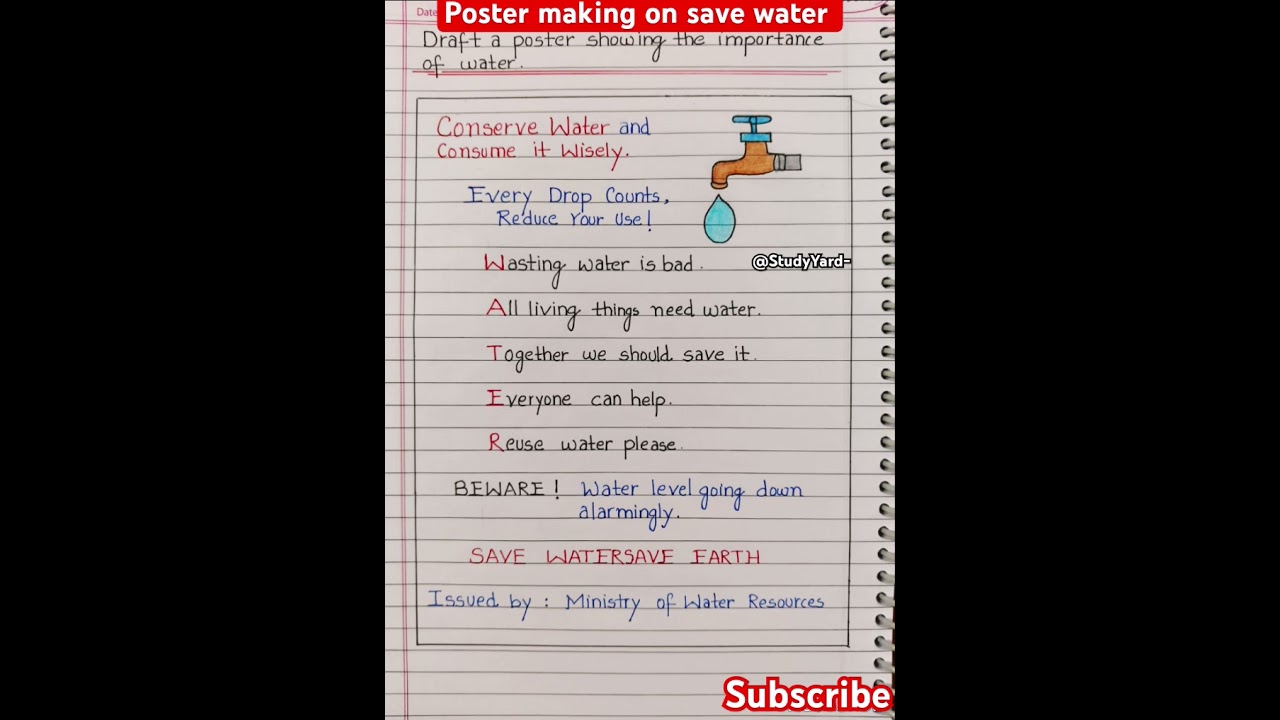 Date
Poster making on save water
Draft a poster showing the importance
of water.
Conserve Water and
Consume it Wisely.
Every Drop Counts,
Reduce Your Use!
@StudyYard-
Wasting water is bad.
All living things need water.
Together we should save it.
Everyone can help.
Reuse water please.
BEWARE! Water level going down
alarmingly.
SAVE WATERSAVE EARTH
Issued by : Ministry of Water Resources
Subscribe